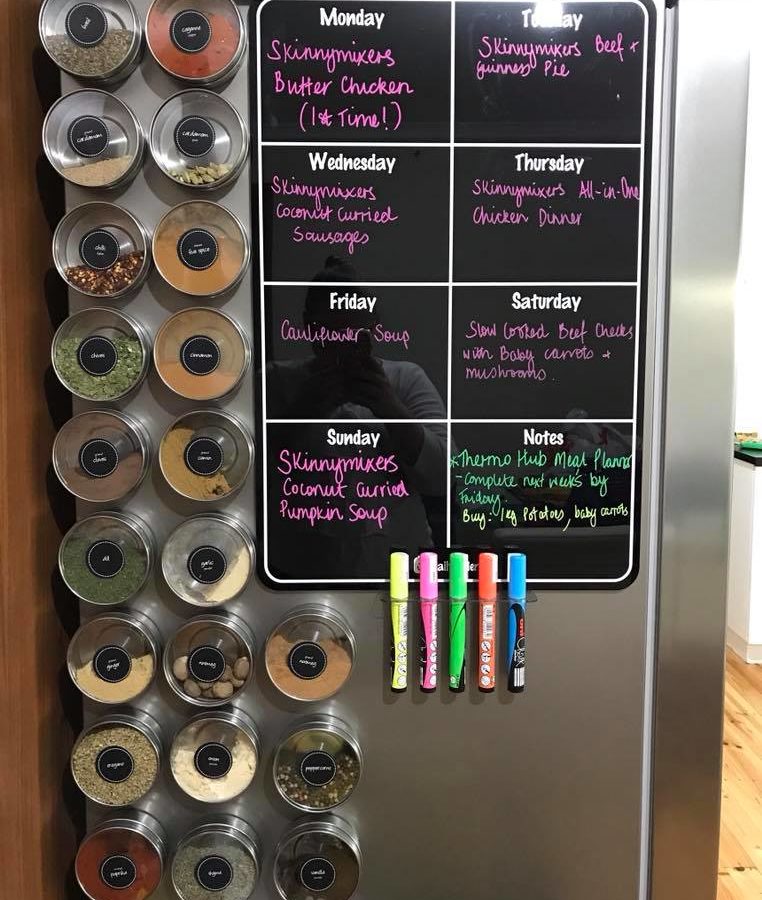 basil
cayenne
ground
cardamom
cardamom
chilli
flakes
five spice
chives
cinnamon
cloves
cumin
dill
garlic
ground
ginger
nutmeg
ground
nutmeg
oregano
onion
peppercorns
paprika
thyme
vanilla
Monday
Skinnymixers
Butter Chicken
(1st Time!)
Tuesday
Skinnymixers Beef +
Guinness Pie
Wednesday
Skinnymixers
Coconut Curried
Sausages
Thursday
Skinnymixers All-in-One
Chicken Dinner
Friday
Cauliflower Soup
Saturday
Slow Cooked Beef Cheeks
with Baby carrots +
mushrooms.
Sunday
Skinnymixers
Coconut Curried
Pumpkin Soup
Notes
*Thermo Hub Meal Planner
-complete next week's by
Friday.
Buy: 1kg Potatoes, baby carrots
uni